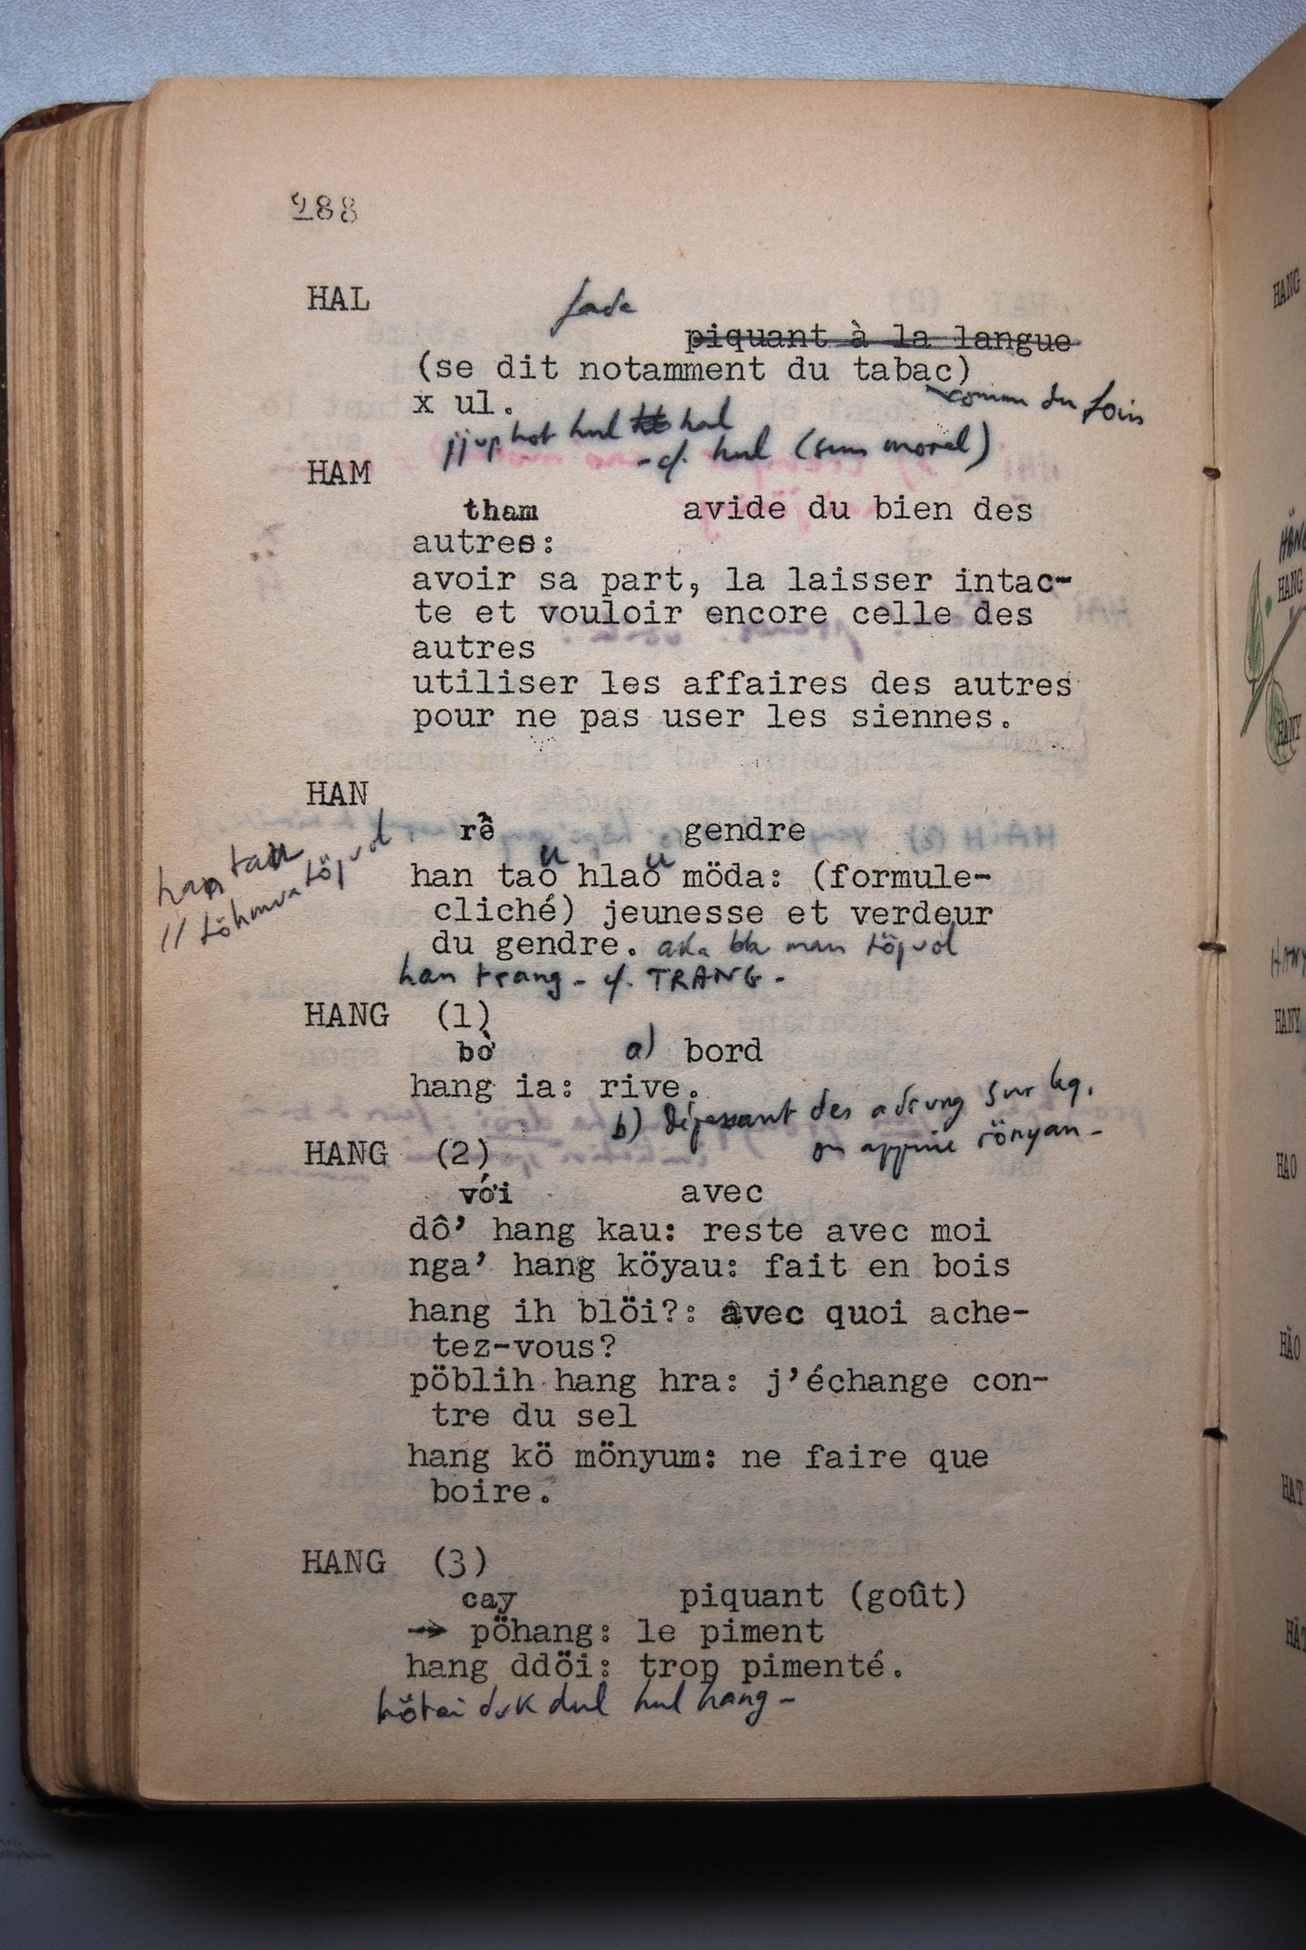 288
HAL
fade
piquant à la langue
(se dit notamment du tabac)
comme du foin
x ul.
hul hal
- cf. hul (sens moral)
HAM
tham avide du bien des
autres:
avoir sa part, la laisser intac-
te et vouloir encore celle des
autres
utiliser les affaires des autres
pour ne pas user les siennes.
HAN
rể gendre
han tau
//
han taŏ hlaŏ möda: (formule-
cliché) jeunesse et verdeur
du gendre. man töjuol
han trang - cf. TRANG -
HANG (1)
bờ a) bord
hang ia: rive.
b) dépassant des adrung sur
on appuie rönyan -
HANG (2)
với avec
dô’ hang kau: reste avec moi
nga’ hang köyau: fait en bois
hang ih blöi?: avec quoi ache-
tez-vous?
pöblih hang hra: j’échange con-
tre du sel
hang kö mönyum: ne faire que
boire.
HANG (3)
cay piquant (goût)
→ pöhang: le piment
hang ddöi: trop pimenté.
hul hang -
HANG
HANG
HANG
HANY
HANY
HANY
HAO
HĂO
HAT